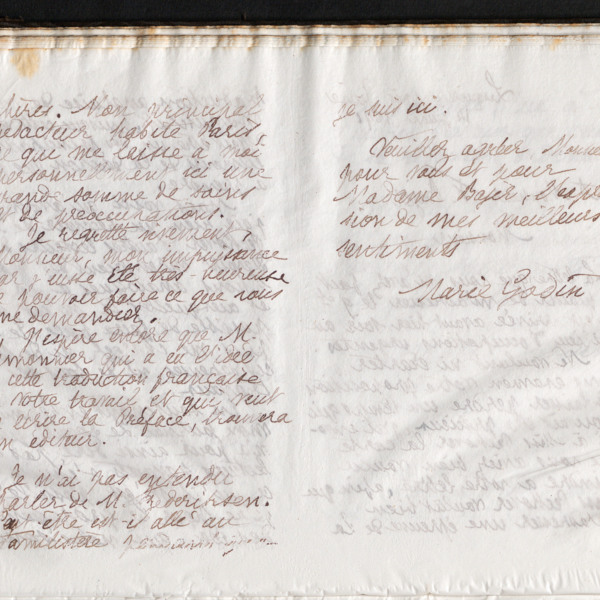 Mon principal
rédacteur habite Paris,
ce qui me laisse à moi
personnellement ici une
grande somme de soins
et de préoccupations.
Je regrette vivement,
Monsieur, mon impuissance
car j'eusse été très-heureuse
de pouvoir faire ce que vous
me demandiez.
J'espère encore que M.
qui a eu l'idée
cette traduction française
votre travail et qui veut
écrire la Préface, trouvera
un éditeur.
Je n'ai pas entendu
parler de M. Frederiksen.
Peut être est-il allé au
Familistère
je suis ici.
Veuillez agréer
pour vous et pour
Madame Bajer, l'expres
sion de mes meilleurs
sentiments
Marie Godin